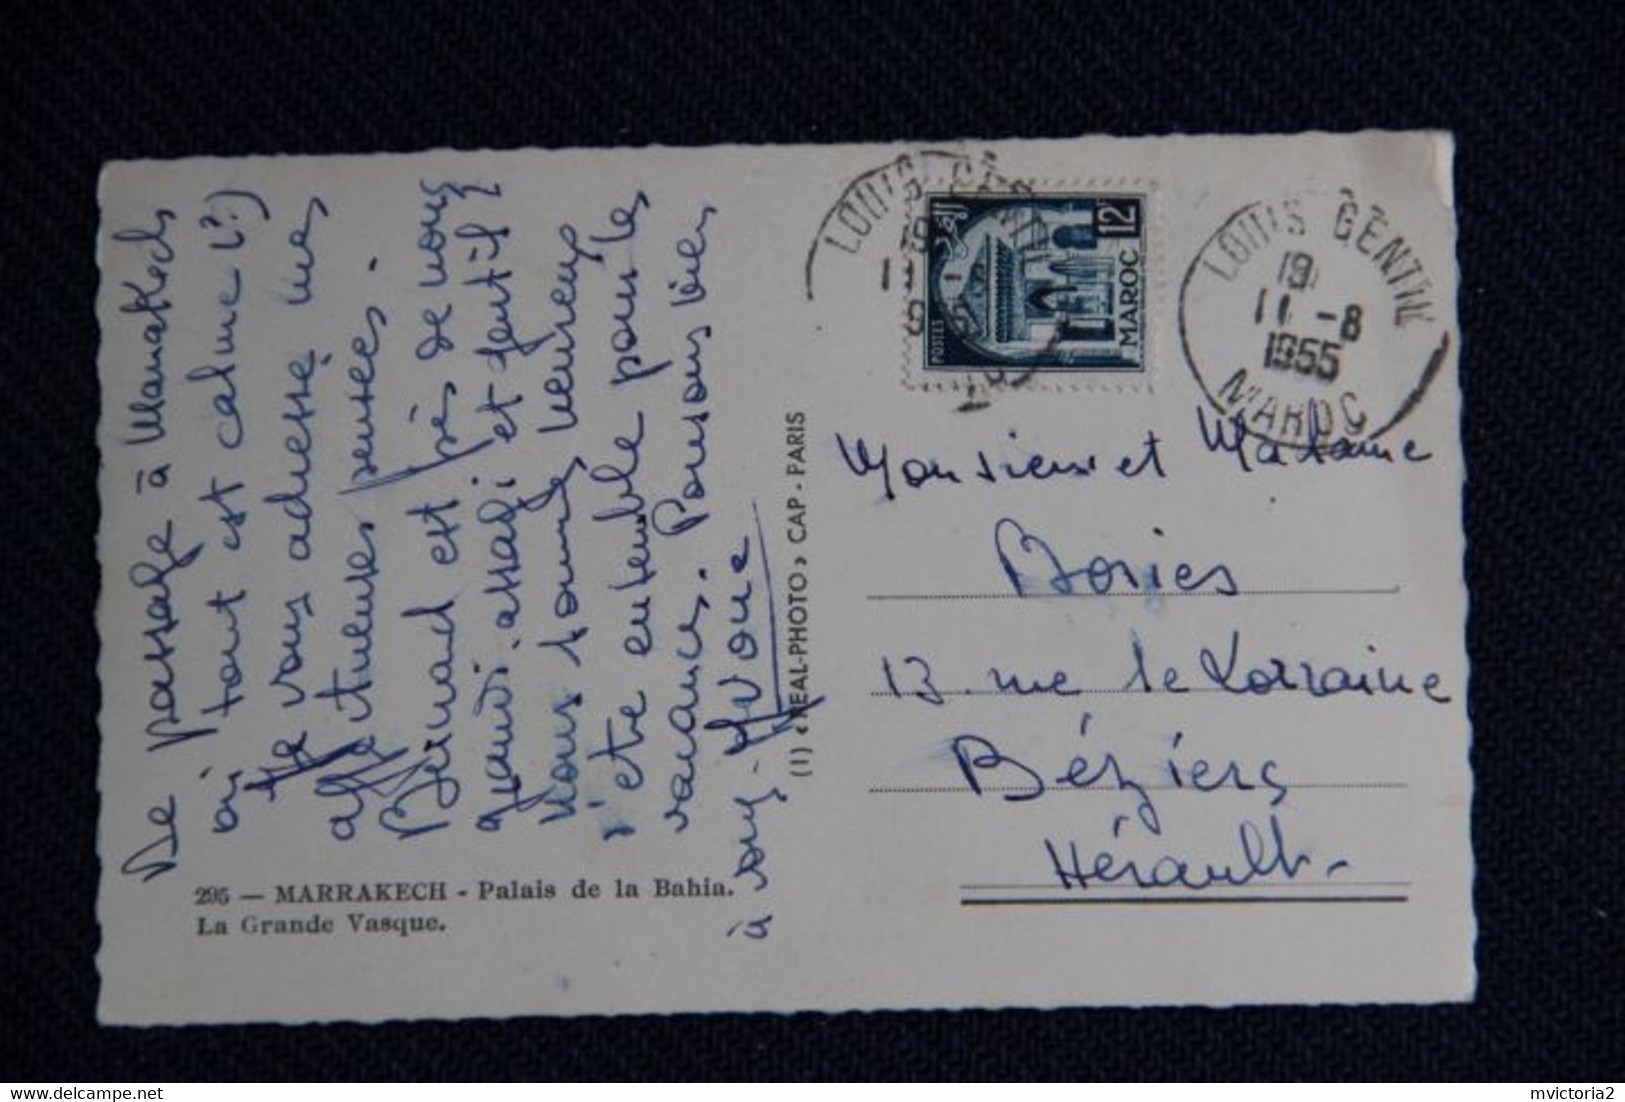 De passage à Marrakech
où tout est calme (?)
je vous adresse mes
affectueuses pensées.
Bernard est près de nous
aussi et gentil ?
Nous sommes heureux
d'être ensemble pour les
vacances. Pensons bien
à vous - Yvonne
295 — MARRAKECH - Palais de la Bahia.
La Grande Vasque.
(1) « REAL-PHOTO » CAP - PARIS
LOUIS GENTIL
POSTES
MAROC
12F
LOUIS GENTIL
19
11 -8
1955
MAROC
Monsieur et Madame
Bories
13. rue de Lorraine
Béziers
Hérault-
mvictoria2